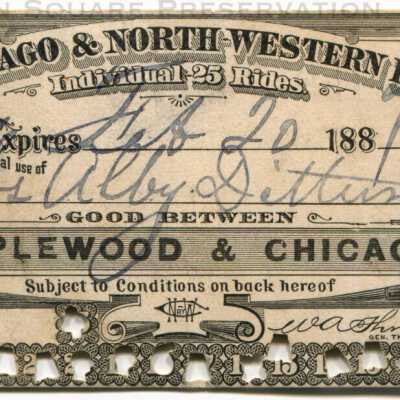 N SQUARE PRESERVATION
AGO & NORTH-WESTERN R
Individual 25 Rides.
Expires Feb 20 188
al use of
Alby Dittun
GOOD BETWEEN
PLEWOOD & CHICAG
Subject to Conditions on back hereof
N W
GEN. T